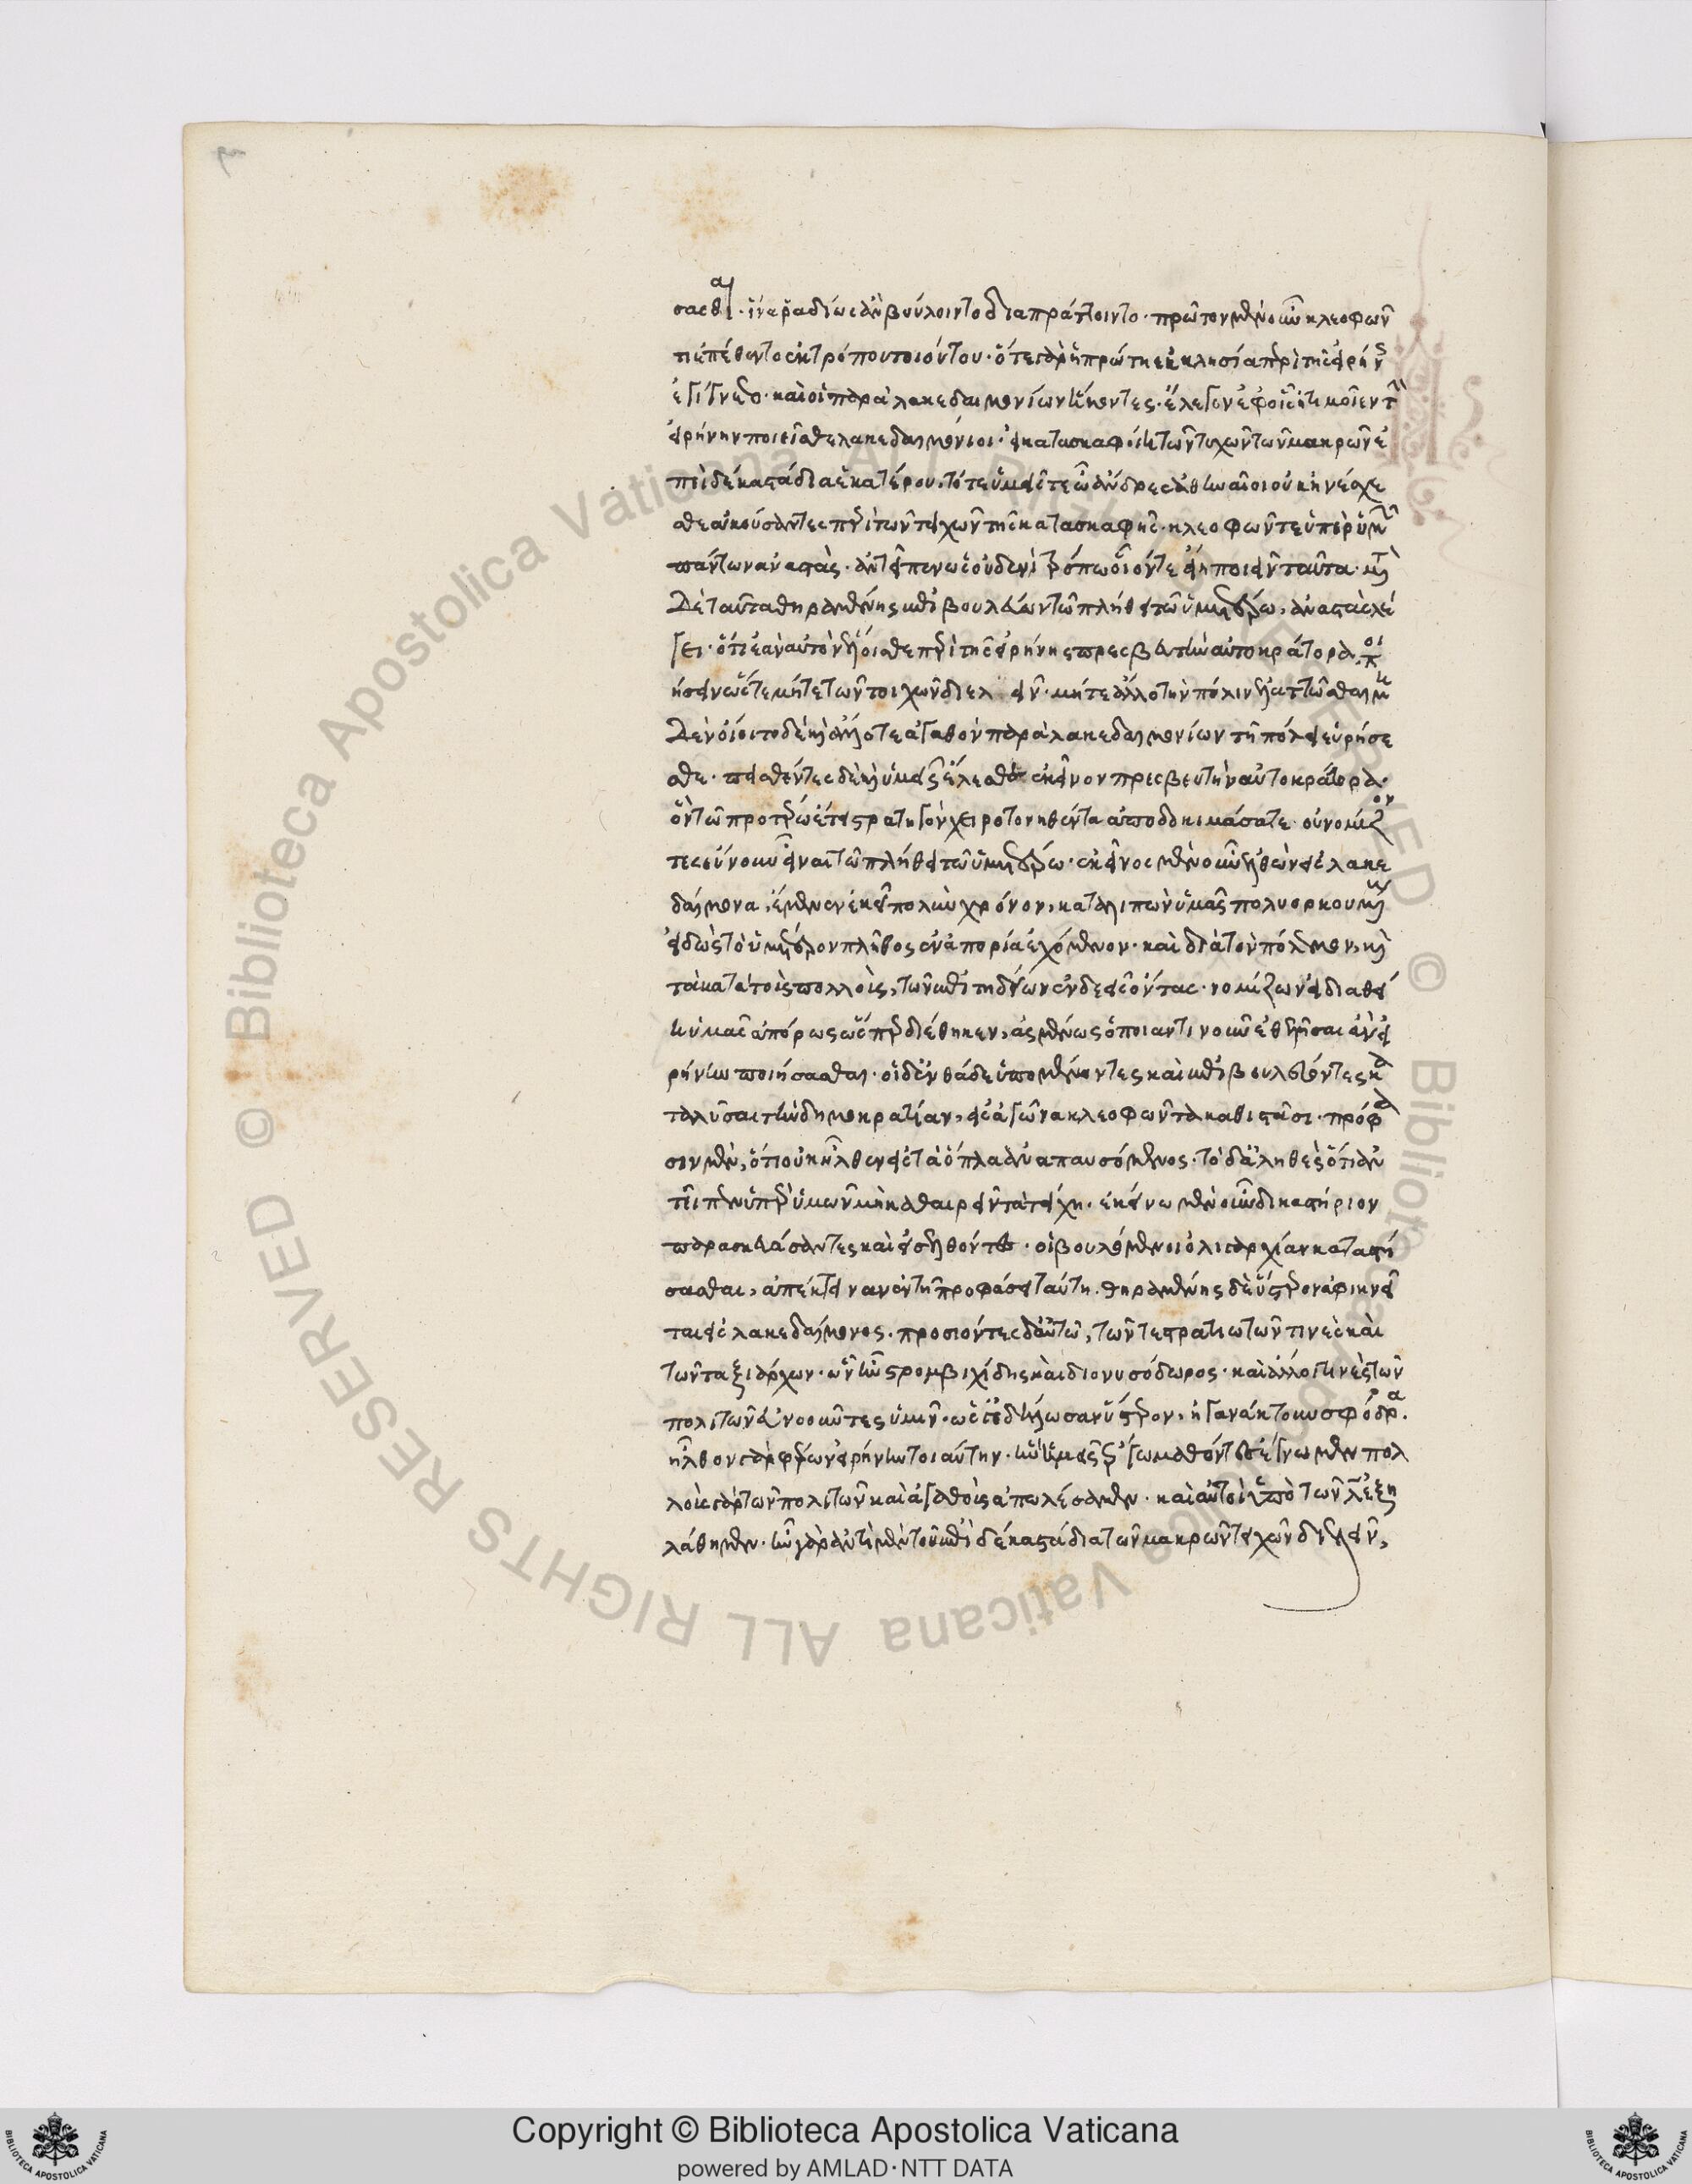 σασθαι· ἵνα ῥαδίως ἃν βούλοιντο διαπράττοιντο· πρῶτον μὲν οὖν κλεοφῶν
τι ἐπέθεντο ἐκ τρόπου τοιούτου· ὅτε γὰρ ἡ πρώτη ἐκκλησία περὶ τῆς εἰρήνης
ἐγίγνετο· καὶ οἱ παρὰ λακεδαιμονίων ἥκοντες· ἔλεγον ἐφ' οἷς ἕτοιμοι εἶεν τὴν
εἰρήνην ποιεῖσθαι λακεδαιμόνιοι· εἰ κατασκαφείη τῶν τειχῶν τῶν μακρῶν ἐ
πὶ δέκα στάδια ἑκατέρου· τότε ὑμεῖς τε ὦ ἄνδρες ἀθηναῖοι οὐκ ἠνέσχε
σθε ἀκούσαντες περὶ τῶν τειχῶν τῆς κατασκαφῆς· κλεοφῶν τε ὑπὲρ ὑμῶν
πάντων ἀναστὰς· ἀντεῖπεν ὡς οὐδενὶ τρόπω οἷόν τε εἴη ποιεῖν ταῦτα· μετὰ
δὲ ταῦτα θηραμένης ἐπιβουλεύων τῶ πλήθει τῶ ὑμετέρω, ἀναστὰς λέ
γει· ὅτι ἐὰν αὐτὸν ἕλοισθε περὶ τῆς εἰρήνης πρεσβευτὴν αὐτοκράτορα,
ποιήσειν ὥστε μήτε τῶν τειχῶν διελεῖν· μήτε ἄλλο τὴν πόλιν ἐλαττῶσαι μη
δὲν· οἴοιτο δὲ καὶ ἄλλο τι ἀγαθὸν παρὰ λακεδαιμονίων τῆ πόλει εὑρήσε
σθαι· πεισθέντες δὲ καὶ ὑμεῖς εἵλεσθε ἐκεῖνον πρεσβευτὴν αὐτοκράτορα·
ὃν τῶ προτέρω ἔτει στρατηγὸν χειροτονηθέντα ἀποδοκιμάσατε· οὐ νομίζον
τες εὔνουν εἶναι τῶ πλήθει τῶ ὑμετέρω· ἐκεῖνος μὲν οὖν ἐλθὼν εἰς λακε
δαίμονα, ἔμενεν ἐκεῖ πολὺν χρόνον, καταλιπὼν ὑμᾶς πολυορκουμένους
εἰδὼς τὸ ὑμέτερον πλῆθος ἐν ἀπορία ἐχόμενον· καὶ διὰ τὸν πόλεμον, καὶ
τὰ κακὰ τοὺς πολλοὺς, τῶν ἐπιτηδείων ἐνδεεῖς ὄντας· νομίζων εἰ διαθεί
η ὑμᾶς ἀπόρως ὥσπερ διέθηκεν, ἀσμένως ὁποιαντινοῦν ἐθελῆσαι ἂν εἰ
ρήνην ποιήσασθαι· οἱ δ' ἐνθάδε ὑπομένοντες καὶ ἐπιβουλεύοντες κα
ταλῦσαι τὴν δημοκρατίαν, εἰς ἀγῶνα κλεοφῶντα καθιστᾶσι· πρόφα
σιν μὲν, ὅτι οὐκ ἦλθεν εἰς τὰ ὅπλα ἀναπαυσόμενος· τὸ δ' ἀληθὲς ὅτι ἀν
τεῖπεν ὑπὲρ ὑμῶν μὴ καθαιρεῖν τὰ τείχη· ἐκείνω μὲν οὖν δικαστήριον
παρασκευάσαντες καὶ εἰσελθόντες· οἱ βουλόμενοι ὀλιγαρχίαν καταστή
σασθαι, ἀπέκτειναν ἐν τῆ προφάσει ταύτη· θηραμένης δὲ ὕστερον ἀφικνεῖ
ται εἰς λακεδαίμονος· προσιόντες δ' αὐτῶ, τῶν τε στρατιωτῶν τινὲς καὶ
τῶν ταξιάρχων· ὧν ἦν στρομβιχίδης καὶ διονυσόδωρος· καὶ ἄλλοι τινὲς τῶν
πολιτῶν εὐνοοῦντες ὑμῖν· ὥς γ' ἐδήλωσαν ὕστερον, ἠγανάκτουν σφόδρα·
ἦλθον γὰρ φέρων εἰρήνην τοιαύτην· ἣν ἡμεῖς ἔργω μαθόντες ἔγνωμεν πολ
λοὺς γὰρ τῶν πολιτῶν καὶ ἀγαθοὺς ἀπωλέσαμεν· καὶ αὐτοὶ ὑπὸ τῶν λ ἐξη
λάθημεν· ἦν γὰρ ἀντὶ μὲν τοῦ ἐπὶ δέκα στάδια τῶν μακρῶν τειχῶν διελεῖν,